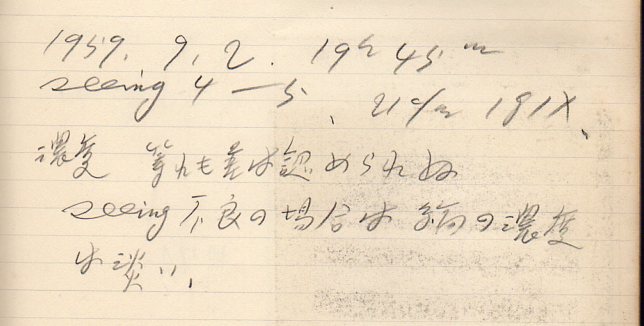 1959. 9. 2. 19h 45m
seeing 4―5、21cm 181X、
濃度 も差は認められぬ
seeing 不良の場合は の濃度
は淡い、